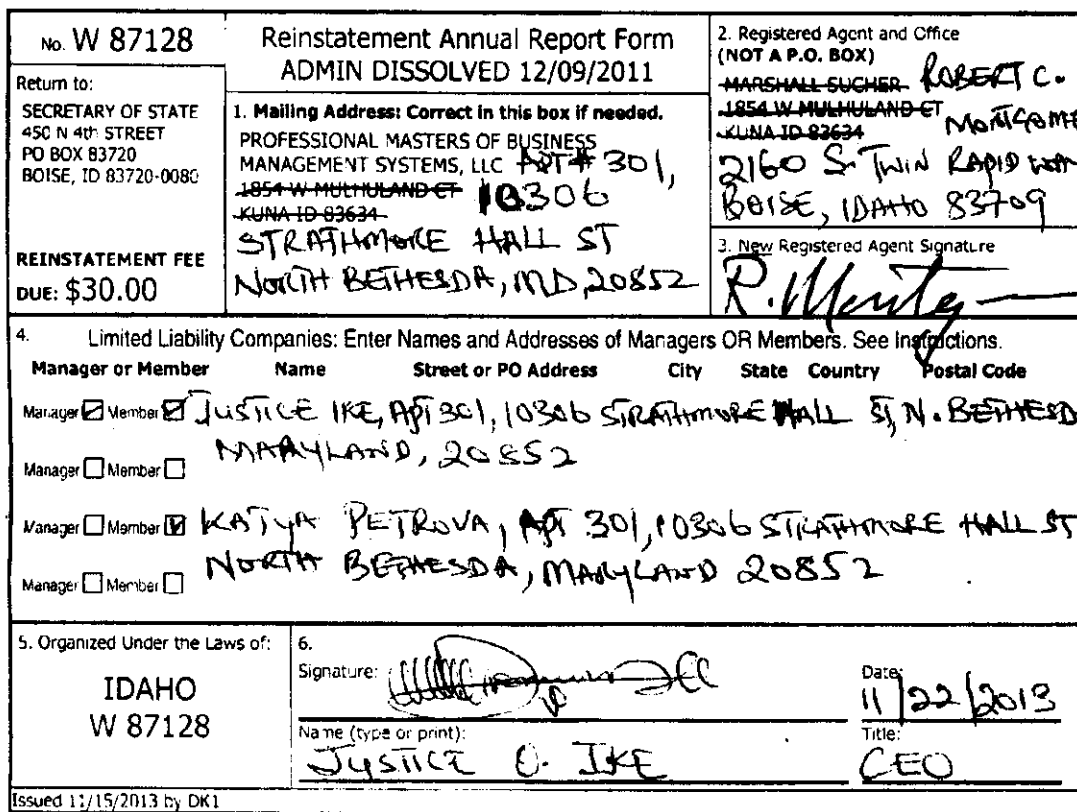 No. W 87128
Return to:
SECRETARY OF STATE
450 N 4th STREET
PO BOX 83720
BOISE, ID 83720-0080
REINSTATEMENT FEE
DUE: $30.00
Reinstatement Annual Report Form
ADMIN DISSOLVED 12/09/2011
1. Mailing Address: Correct in this box if needed.
PROFESSIONAL MASTERS OF BUSINESS
MANAGEMENT SYSTEMS, LLC APT # 301,
1854 W MULHULAND CT 10306
KUNA ID 83634
STRATHMORE HALL ST
NORTH BETHESDA, MD, 20852
2. Registered Agent and Office
(NOT A P.O. BOX)
MARSHALL SUCHER ROBERT C.
1854 W MULHULAND CT MONTGOME
KUNA ID 83634
2160 S. TWIN RAPID WAY
BOISE, IDAHO 83709
3. New Registered Agent Signature
4. Limited Liability Companies: Enter Names and Addresses of Managers OR Members. See Instructions.
Manager or Member Name Street or PO Address City State Country Postal Code
Manager Member JUSTICE IKE, APT 301, 10306 STRATHMORE HALL ST, N. BETHESD
MARYLAND, 20852
Manager Member
Manager Member KATYA PETROVA, APT 301, 10306 STRATHMORE HALL ST
NORTH BETHESDA, MARYLAND 20852
Manager Member
5. Organized Under the Laws of:
IDAHO
W 87128
6.
Signature:
Date:
11/22/2013
Name (type or print):
JUSTICE O. IKE
Title:
CEO
Issued 11/15/2013 by DK1